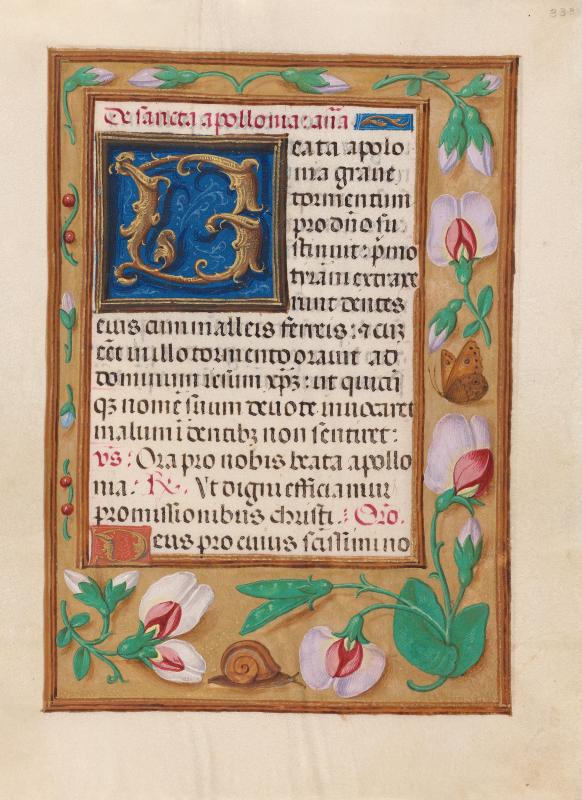 333
De sancta apollonia: añã
Beata apolo
nia graue
tormentum
pro dño su
stinuit: p̃mo
tirãni extraxe
runt dentes
eius cum malleis ferreis: ⁊ cũ
eẽt in illo tormento orauit ad
dominum iesum xp̃ꝫ: ut quicũ
qꝫ nomẽ suum deuote inuocaret
malum ĩ dentibꝫ non sentiret:
vs̃: Ora pro nobis beata apollo
nia. ℟. Vt digni efficiamur
promissionibus christi: Orõ.
Deus pro cuius scissimi no